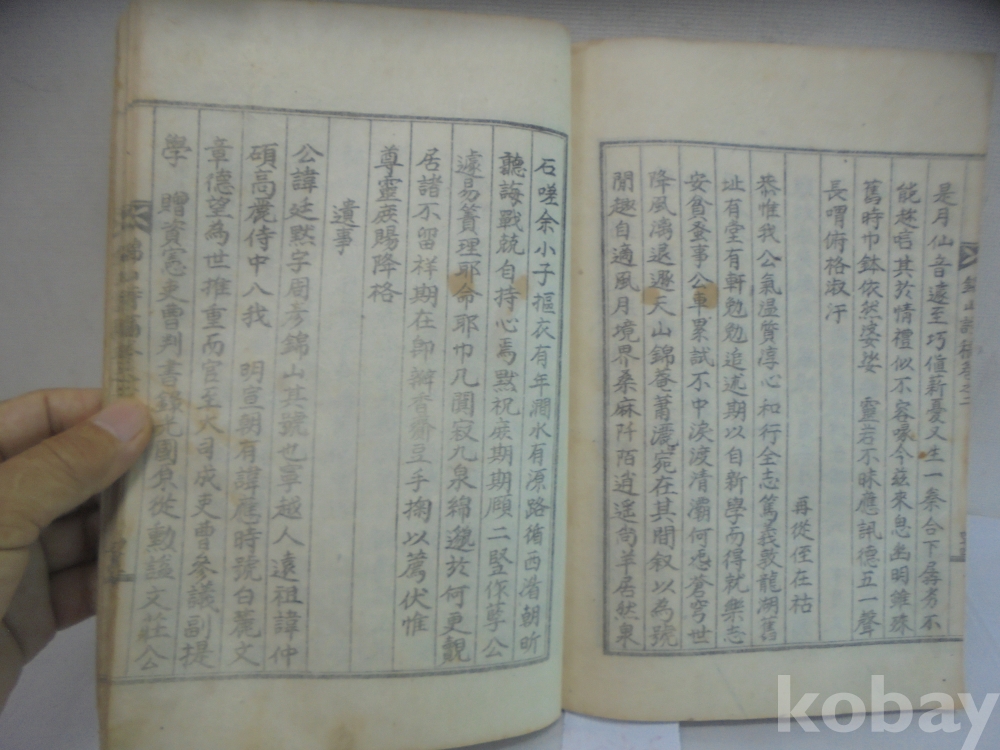 是月仙音遽至巧値新憂又生一奈合下房務不
能趍唁其於情禮似不容喙今玆來思幽明雖殊
舊時巾鉢依然婆娑 靈若不昧應訊德五一聲
長喟俯格淑汙
再從侄在祜
恭惟我公氣溫質淳心和行全志篤義敦龍湖舊
址有堂有軒勉勉追述期以自新學而得就樂志
安貧蚤事公車累試不中淚渡淸灞何憑蒼穹世
降風淆退遯天山錦菴蕭灑宛在其間叙以爲號
閒趣自適風月境界桑麻阡陌逍遙尙羊居然泉
石嗟余小子摳衣有年澗水有源路循西渚朝昕
聽誨戰兢自持心焉默祝庶期期頤二竪作孼公
遽易簀理耶命耶巾几闃寂九泉綿邈於何更覿
居諸不留祥期在卽辦香齋豆手掬以薦伏惟
尊靈庶賜降格
遺事
公諱廷默字周彦錦山其號也寧越人遠祖諱仲
碩高麗侍中入我 明宣朝有諱應時號白麓文
章德望爲世推重而官至大司成吏曹參議副提
學 贈資憲吏曹判書錄光國原從勳諡文莊公
kobay